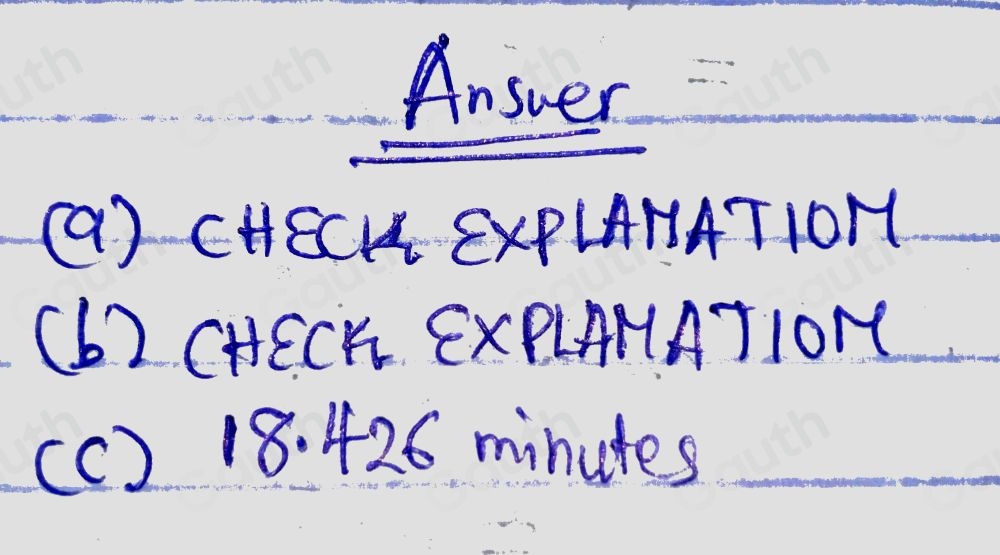 Answer
(a) CHECK EXPLANATION
(b) CHECK EXPLANATION
(c) 18.426 minutes